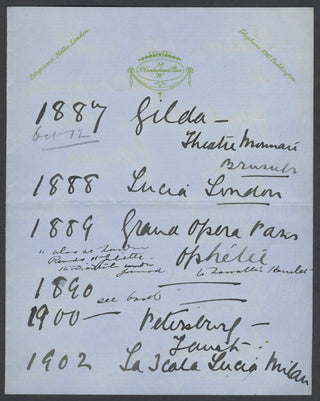 Telegrams, Melba, London.
Telephone, 1267, Paddington.
30
Gt Cumberland Place
W.
1887 Gilda —
Oct 12 Theatre Monnaie
Brussels
1888 Lucia London
1889 Grand Opera Paris
" also at London Ophélie
Romeo & Juliette in Hamlet
1890 see back
1900 — Petersburg —
Faust
1902 La Scala Lucia Milan